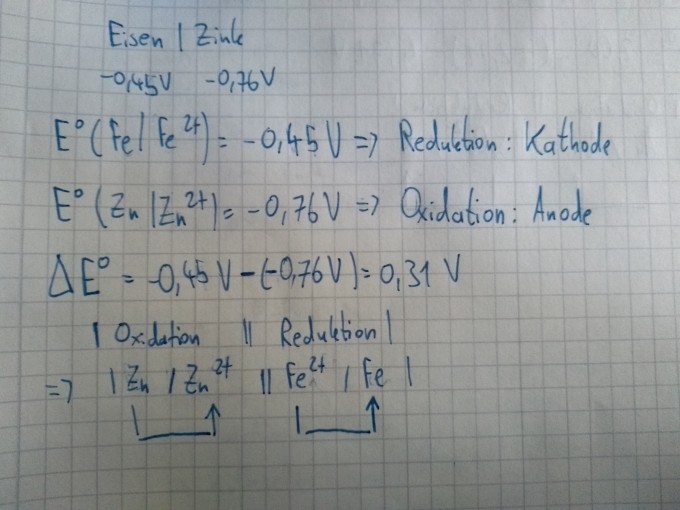 Eisen | Zink
-0,45V -0,76V
E° (Fe | Fe²⁺) = -0,45 V => Reduktion: Kathode
E° (Zn | Zn²⁺) = -0,76V => Oxidation: Anode
ΔE° = -0,45 V - (-0,76V) = 0,31 V
| Oxidation || Reduktion |
=> | Zn / Zn²⁺ || Fe²⁺ / Fe |